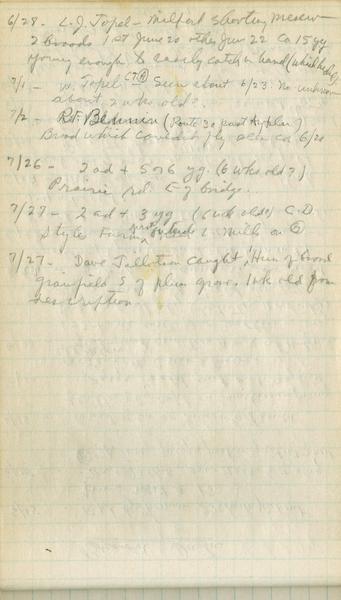 6/28 - L.J. Topel - Milford Shooting
2 broods 1st June 20 other June 22 Ca 15 yg
young enough to easily catch in hand (which he did)
7/1 - W. Topel seen about 6/23. No unknown
about 2 wks old?
7/2 - R+ (Route 30 past
Brood which couldn't fly seen ca 6/20
7/26 - 2 ad + 5 or 6 yg. (6 wks old?)
Prairie rd. E of bridge.
7/27 - 2 ad + 3 yg (6 wk old) C.D
Style Farm Milk on
7/27 - Dave Tallotson caught, Hun of brood
grainfield S of plum grove. 1 wk old from
description.